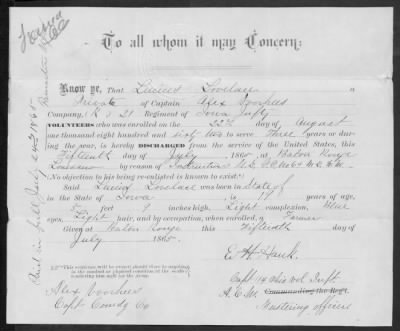 To all whom it may Concern:
Know ye, That Lucius Lovelace a
Private of Captain Alex Voorhees
Company, (K) 21 Regiment of Iowa Infty
VOLUNTEERS who was enrolled on the 22nd day of August
one thousand eight hundred and sixty two to serve Three years or dur-
ing the war, is hereby DISCHARGED from the service of the United States, this
Fifteenth day of July, 1865, at Baton Rouge
Louisiana by reason of
(No objection to his being re-enlisted is known to exist.)
Said Lucius Lovelace was born in State of
in the State of Iowa, is 19 years of age,
5 feet 9 inches high, Light complexion, Blue
eyes, Light hair, and by occupation, when enrolled, a Farmer
Given at Baton Rouge this Fifteenth day of
July 1865.
E. H. Hauk.
Capt 114 Ohio Vol Infty
A. C. M. Commanding the Regt.
Mustering officer
Alex Voorhees
Capt Comdg Co
Paid in full July 1865